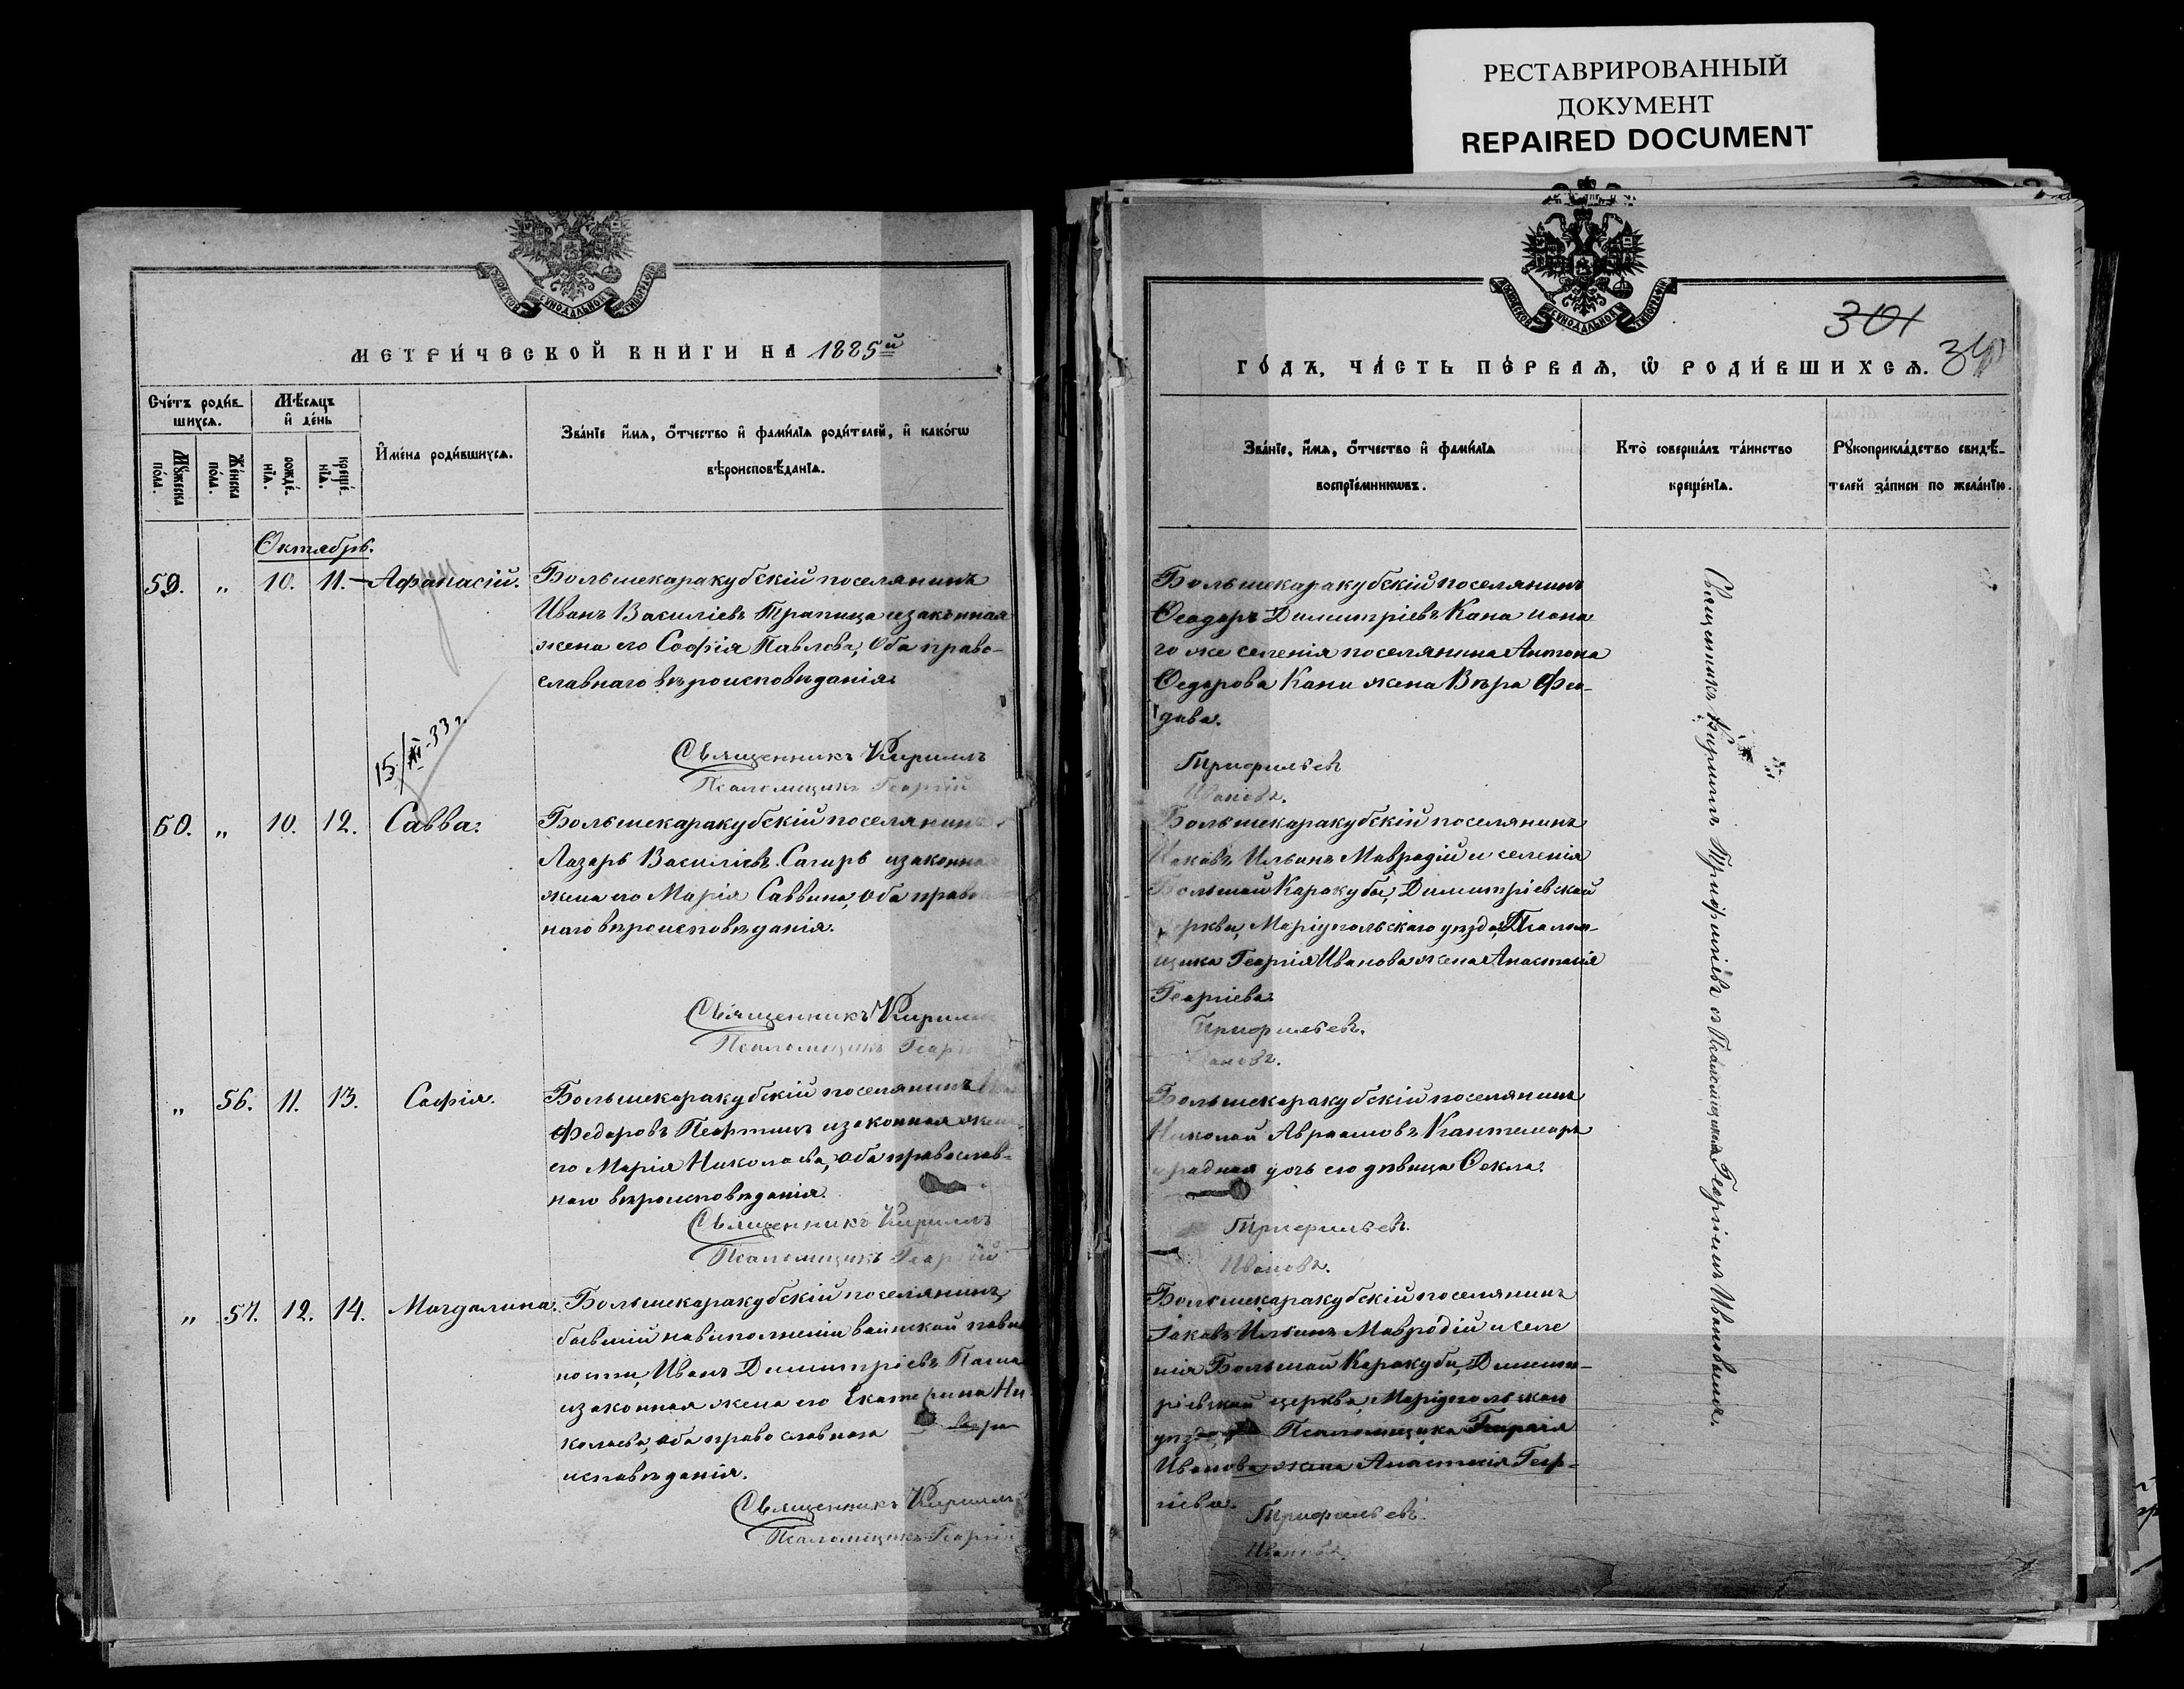 РЕСТАВРИРОВАННЫЙ
ДОКУМЕНТ
REPAIRED DOCUMENT
МЕТРИ́ЧЕСКОЙ КНИ́ГИ НА 1885й
Сче́тъ роди́в-
шихсѧ.
Мѣ́сѧцъ
и҆ де́нь
Мꙋ́жеска
по́ла.
Же́нска
по́ла.
рожде́-
нїѧ.
креще́-
нїѧ.
И҆мена̀ роди́вшихсѧ.
Зва́нїе и҆́мѧ, ѻ҆́тчество и҆ фами́лїѧ роди́телей, и҆ како́гѡ
вѣроисповѣ́данїѧ.
Октябрь.
59. " 10. 11. — Афанасій. Большекаракубскій поселянинъ
Иванъ Василіевъ Трапица и законная
жена его Софія Павлова, оба право-
славнаго вѣроисповѣданія.
15/XI-33 г.
Священникъ Кириллъ
Псаломщикъ Георгій
60. " 10. 12. Савва. Большекаракубскій поселянинъ
Лазарь Василіевъ Сагирь и законная
жена его Марія Саввина, оба право
наго вѣроисповѣданія.
Священникъ Кирилл
Псаломщикъ Георг
" 56. 11. 13. Софія. Большекаракубскій поселянинъ
Федоровъ и законная жена
его Марія Николаева, оба православ-
наго вѣроисповѣданія.
Священникъ Кириллъ
Псаломщикъ Георгій
" 57. 12. 14. Магдалина. Большекаракубскій поселянинъ,
бывшій на исполненіи воинской повин
ности, Иванъ Димитріевъ
и законная жена его Екатерина Ни
колаева, оба православнаго вѣро
исповѣданія.
Священникъ Кириллъ
Псаломщикъ Георгій
301
ГО́ДЪ, ЧА́СТЬ ПЕ́РВАѦ, Ѿ РОДИ́ВШИХСѦ.
Зва́нїе, и҆́мѧ, ѻ҆́тчество и҆ фами́лїѧ
воспрїе́мникѡвъ.
Кто̀ соверша́лъ та́инство
креще́нїѧ.
Рꙋкоприкла́дство свидѣ́-
телей за́писи по жела́нїю.
Большекаракубскій поселянинъ
Ѳеодоръ Димитріевъ Кана и она
го же селенія поселянина Антона
Ѳедорова Кани жена Вѣра Ѳео-
дова.
Трифильевъ
Ивановъ.
Большекаракубскій поселянинъ
Іаковъ Ильинъ Мавродій и селенія
Большой Каракубы, Димитріевской
церкви, Маріупольскаго уѣзда, Псалом-
щика Георгія Иванова жена Анастасія
Георгіева.
Трифильевъ.
Ивановъ.
Большекаракубскій поселянинъ
Николай Авраамовъ Кантемиръ
и родная дочь его дѣвица Ѳекла.
Трифильевъ.
Ивановъ.
Большекаракубскій поселянинъ
Іаковъ Ильинъ Мавродій и селе
нія Большой Каракубы, Димит-
ріевской церкви, Маріупольскаго
уѣзда, Псаломщика Георгія
Иванова жена Анастасія Геор-
гіева.
Трифильевъ.
Ивановъ.
Священникъ Кириллъ Трифильевъ съ Псаломщикомъ Георгіемъ Ивановымъ.